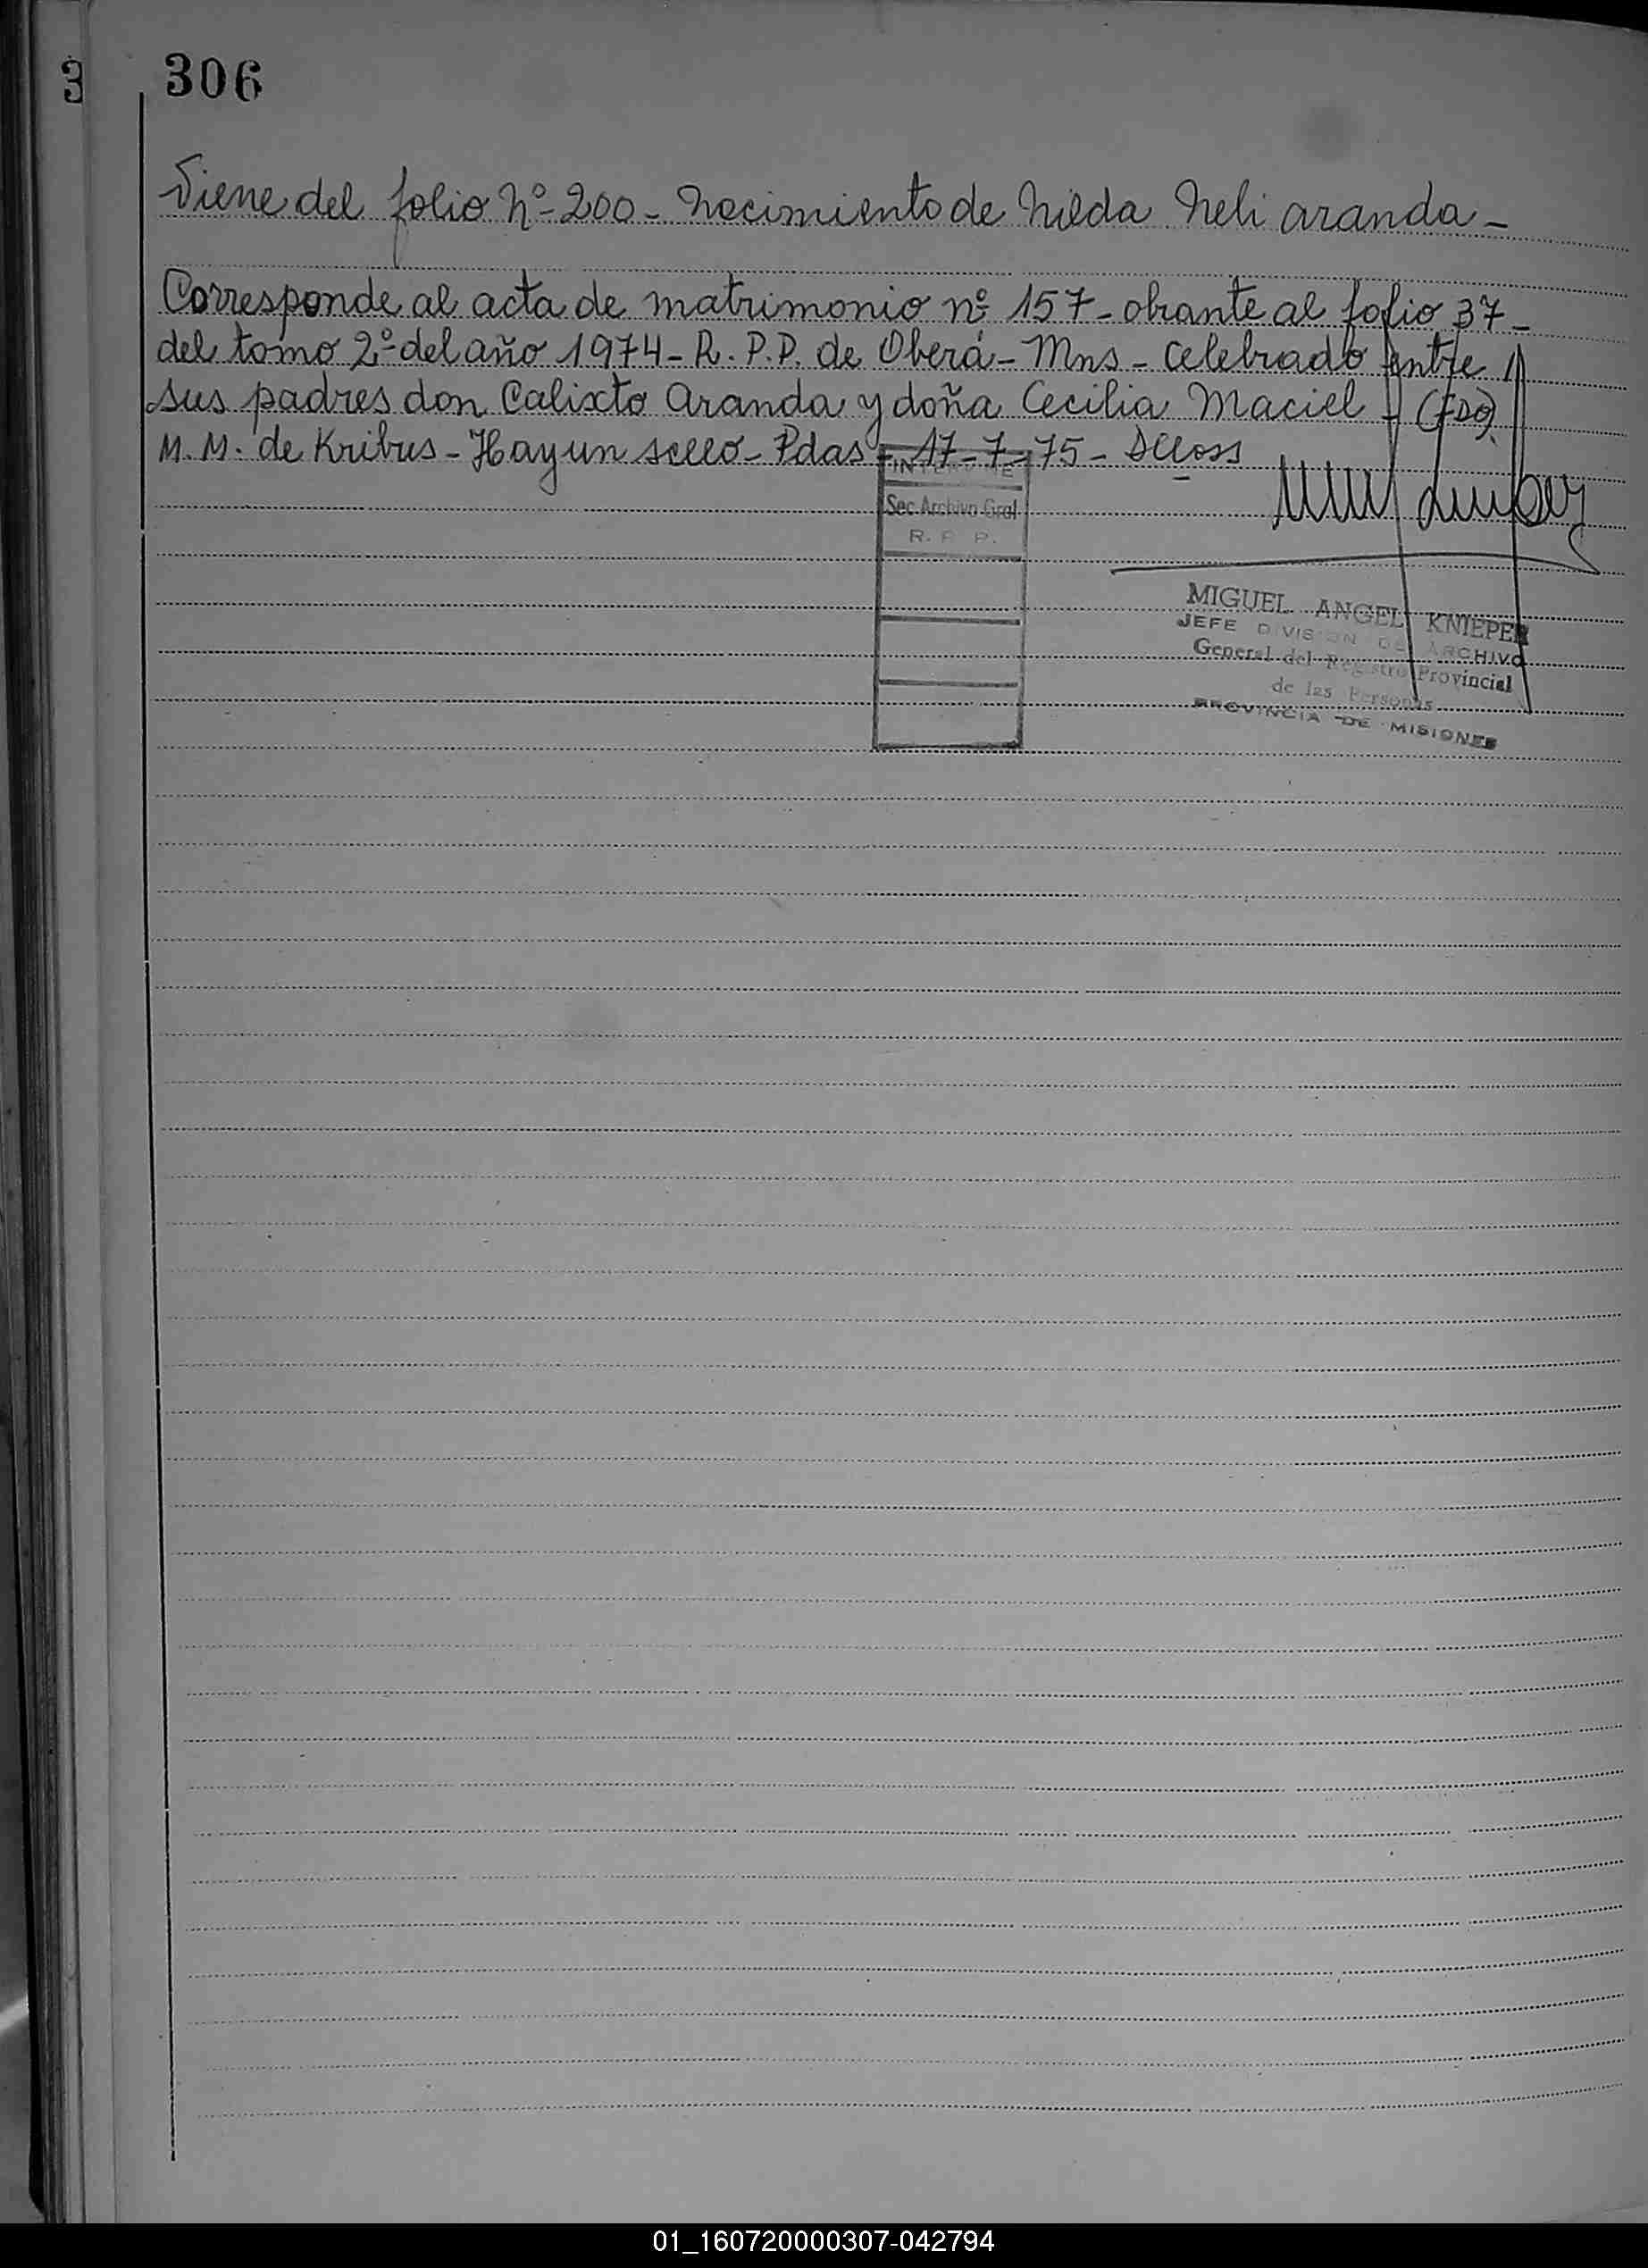 3 306
Viene del folio Nº 200 - Nacimiento de Nilda Neli Aranda -
Corresponde al acta de matrimonio nº 157 - obrante al folio 37 -
del tomo 2º del año 1974 - R. P. P. de Oberá - Mns - celebrado entre
sus padres don Calixto Aranda y doña Cecilia Maciel - (FDO).
M. M. de Kribus - Hay un sello - Pdas - 17 - 7 - 75 -
Sec. Archivo Gral
R. P. P.
MIGUEL ANGEL KNIEPER
JEFE DIVISION DE ARCHIVO
General del Registro Provincial
de las Personas
PROVINCIA DE MISIONES
01_160720000307-042794